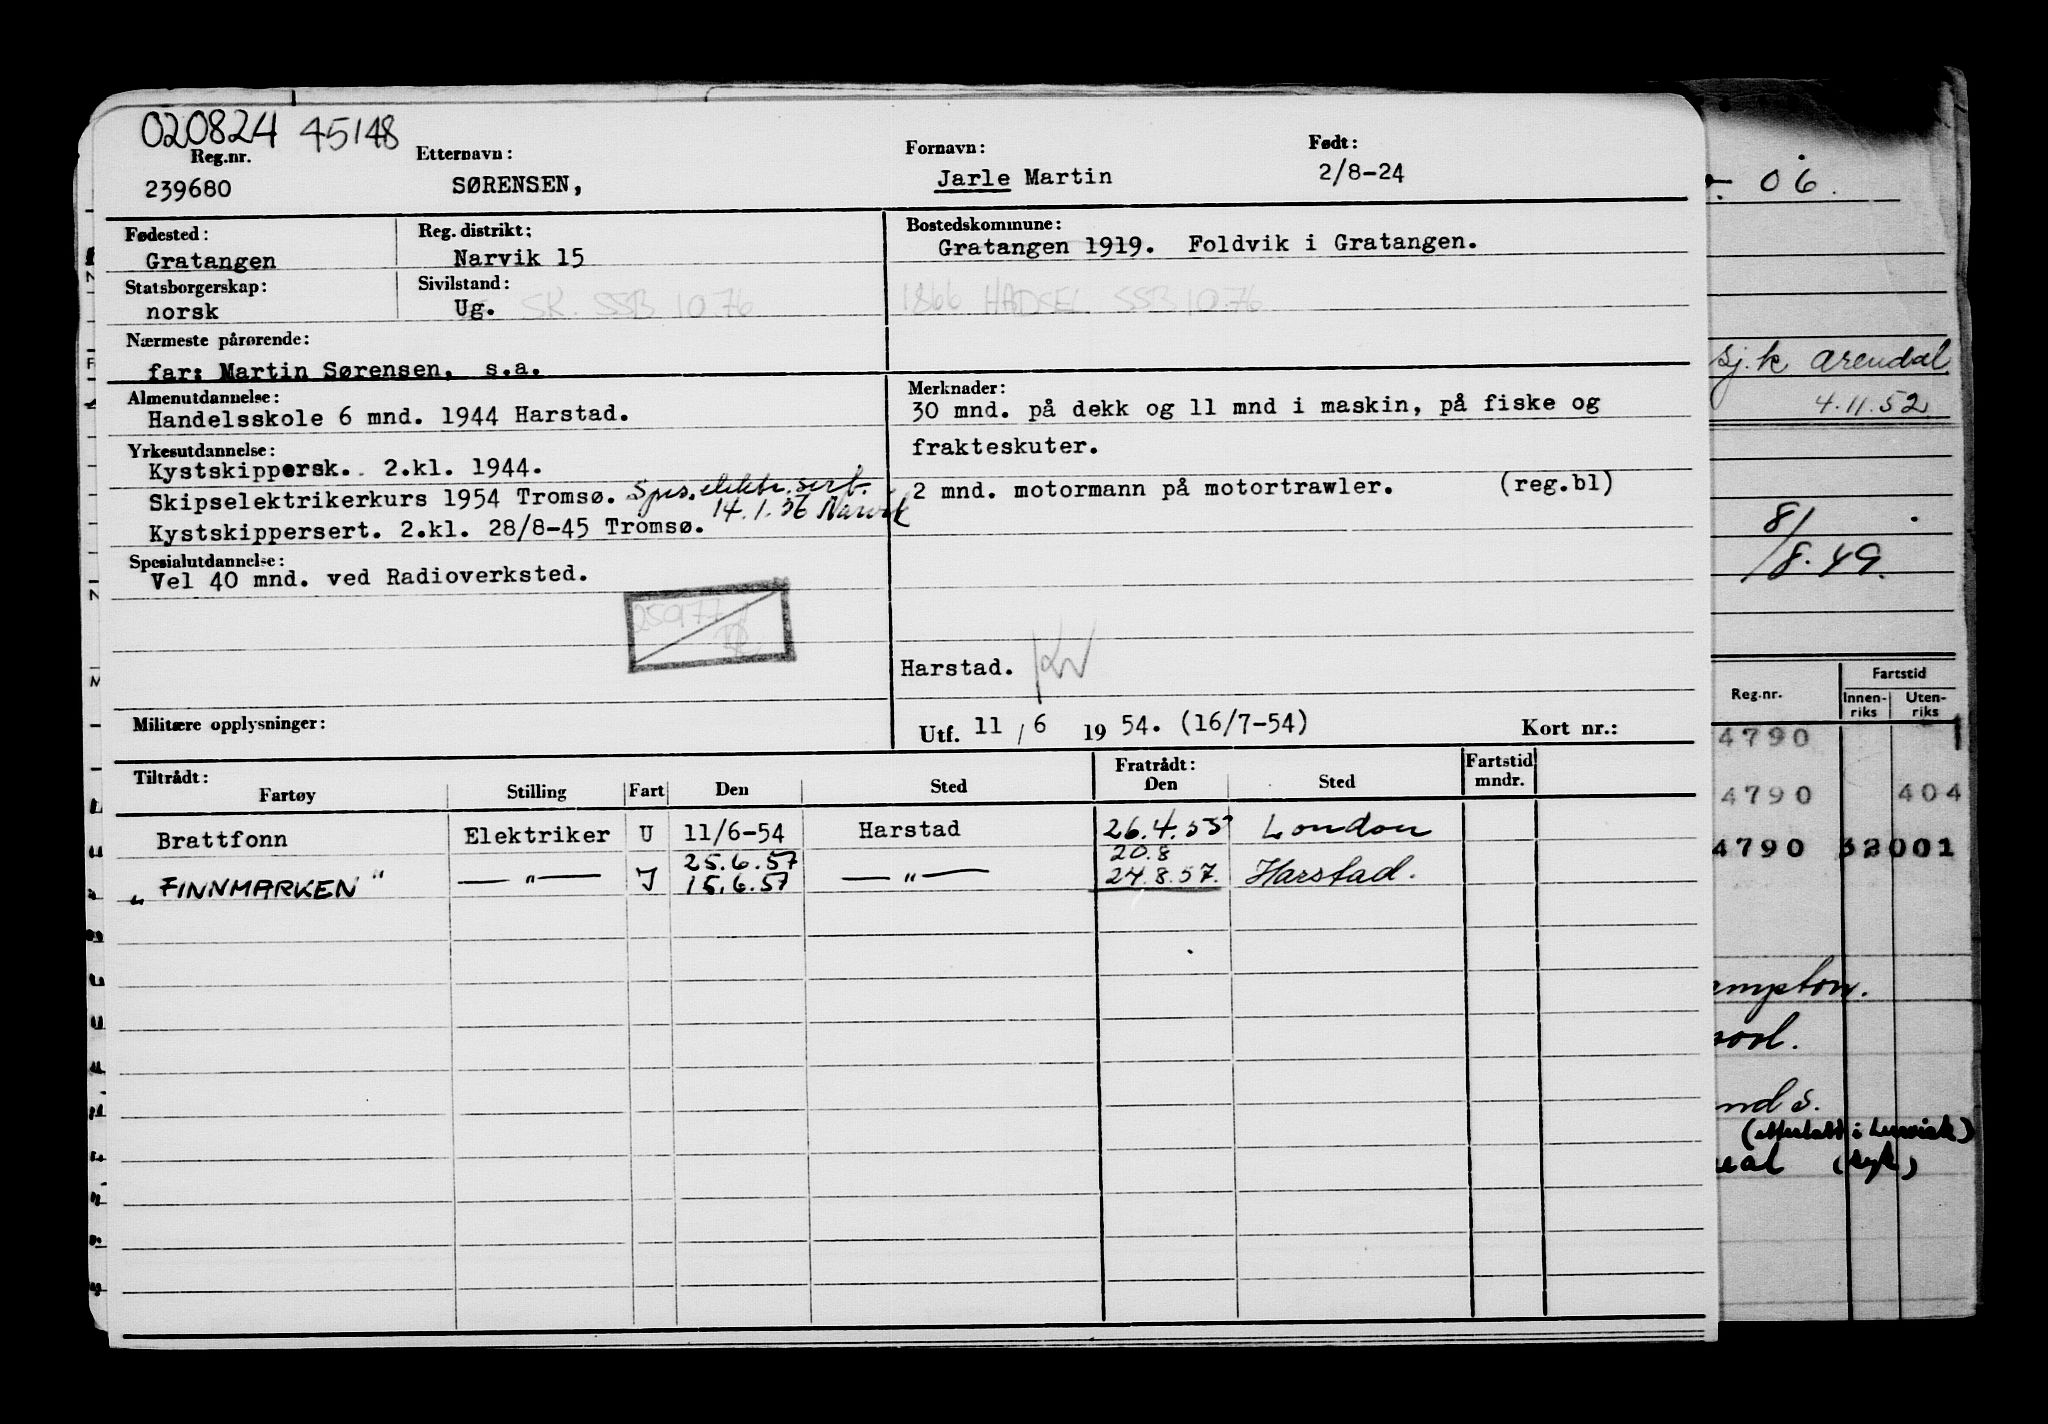 020824 45148
Reg.nr. Etternavn: Fornavn: Født:
239680 SØRENSEN, Jarle Martin 2/8-24
Fødested: Reg. distrikt: Bostedskommune:
Gratangen Narvik 15 Gratangen 1919. Foldvik i Gratangen.
Statsborgerskap: Sivilstand:
norsk Ug. SK. SSB 10 76 1866 HADSEL SSB 10.76
Nærmeste pårørende:
far: Martin Sørensen, s.a.
Almenutdannelse: Merknader:
Handelsskole 6 mnd. 1944 Harstad. 30 mnd. på dekk og 11 mnd i maskin, på fiske og
frakteskuter.
Yrkesutdannelse:
Kystskippersk. 2.kl. 1944.
Skipselektrikerkurs 1954 Tromsø. Spes.elektr.sert. 2 mnd. motormann på motortrawler. (reg.bl)
14.1.56 Narvik
Kystskippersert. 2.kl. 28/8-45 Tromsø.
Spesialutdannelse:
Vel 40 mnd. ved Radioverksted.
250177
Harstad.
Militære opplysninger: Utf. 11/6 1954. (16/7-54) Kort nr.:
Tiltrådt: Fratrådt: Fartstid
Fartøy Stilling Fart Den Sted Den Sted mndr.
Brattfonn Elektriker U 11/6-54 Harstad 26.4.55 London
25.6.57 20.8
„FINNMARKEN" —〃— I 15.6.57 —〃— 24.8.57. Harstad.
06.
sj.k. Arendal
4.11.52
8/
/8.49.
Reg.nr. Fartstid
Innen-riks Uten-riks
4790 1
4790 404
4790 32001
ampton.
nd s.